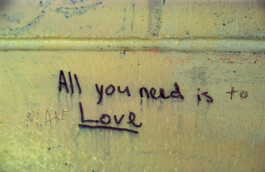 All you need is to
MAKE Love